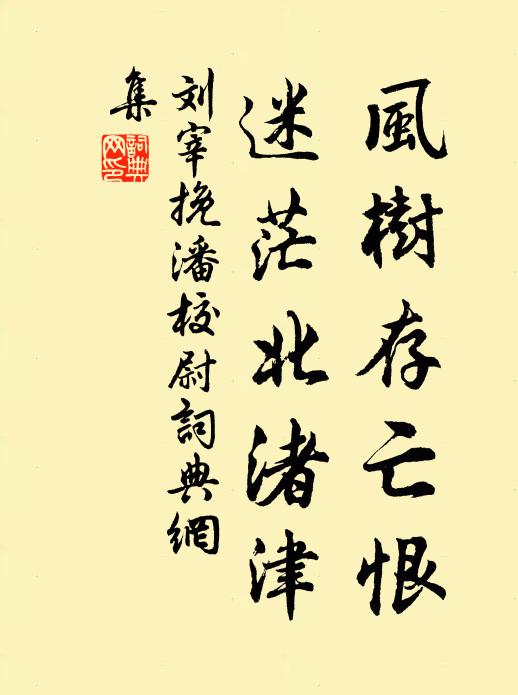 風樹存亡恨
迷茫北渚津
刘宰挽潘校尉詞典網
集
詞典网印